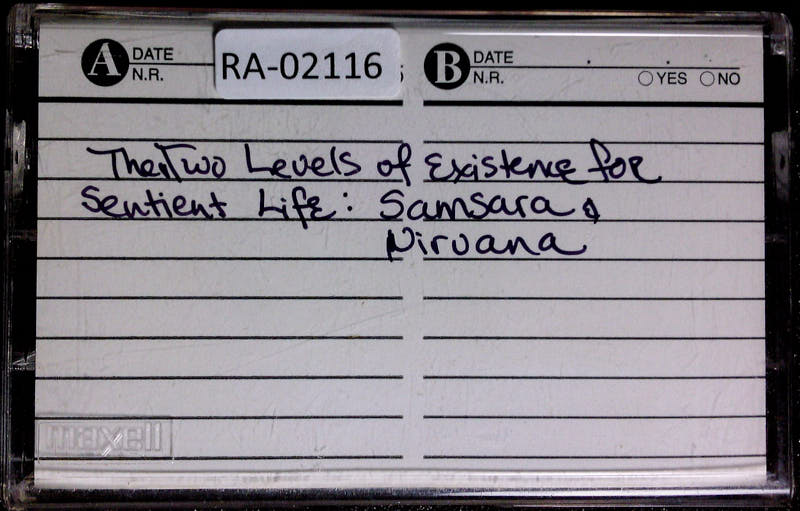 A DATE
N.R.
RA-02116
B DATE
N.R.
YES NO
The Two Levels of Existence for
Sentient Life: Samsara &
Nirvana
maxell